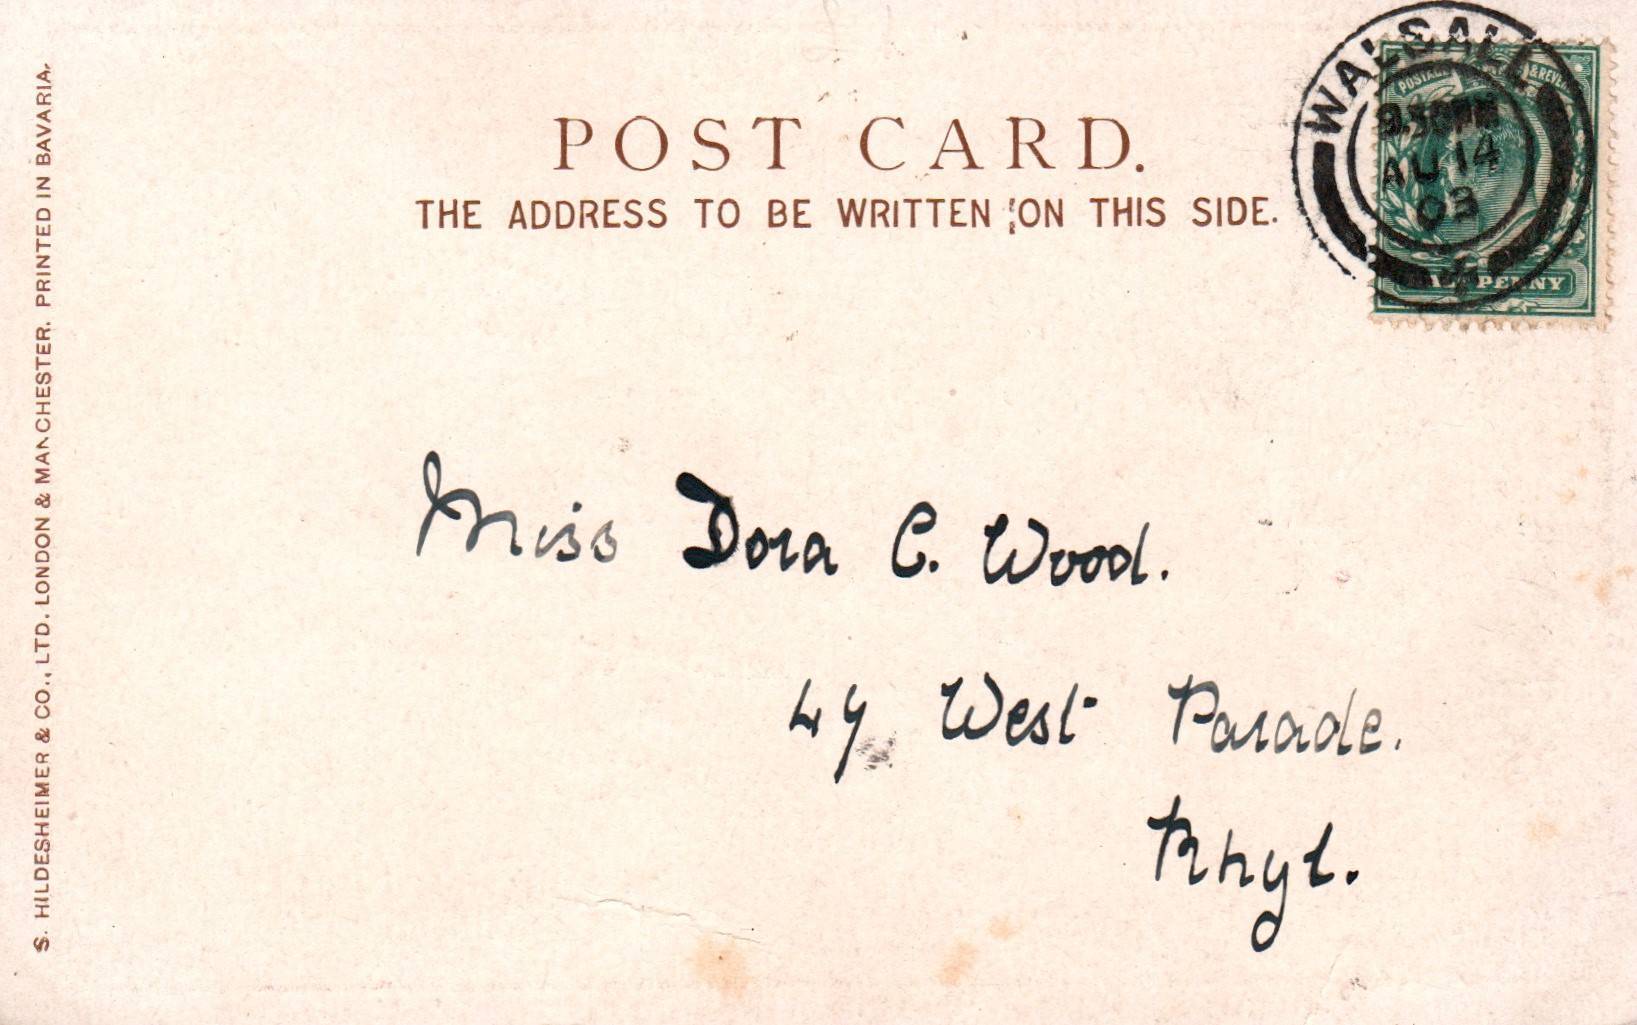 POST CARD.
THE ADDRESS TO BE WRITTEN ON THIS SIDE.
WALSALL
9.30PM
AU 14
03
POSTAGE & REVENUE
HALFPENNY
Miss Dora C. Wood.
47 West Parade.
Rhyl.
S. HILDESHEIMER & CO., LTD. LONDON & MANCHESTER. PRINTED IN BAVARIA.